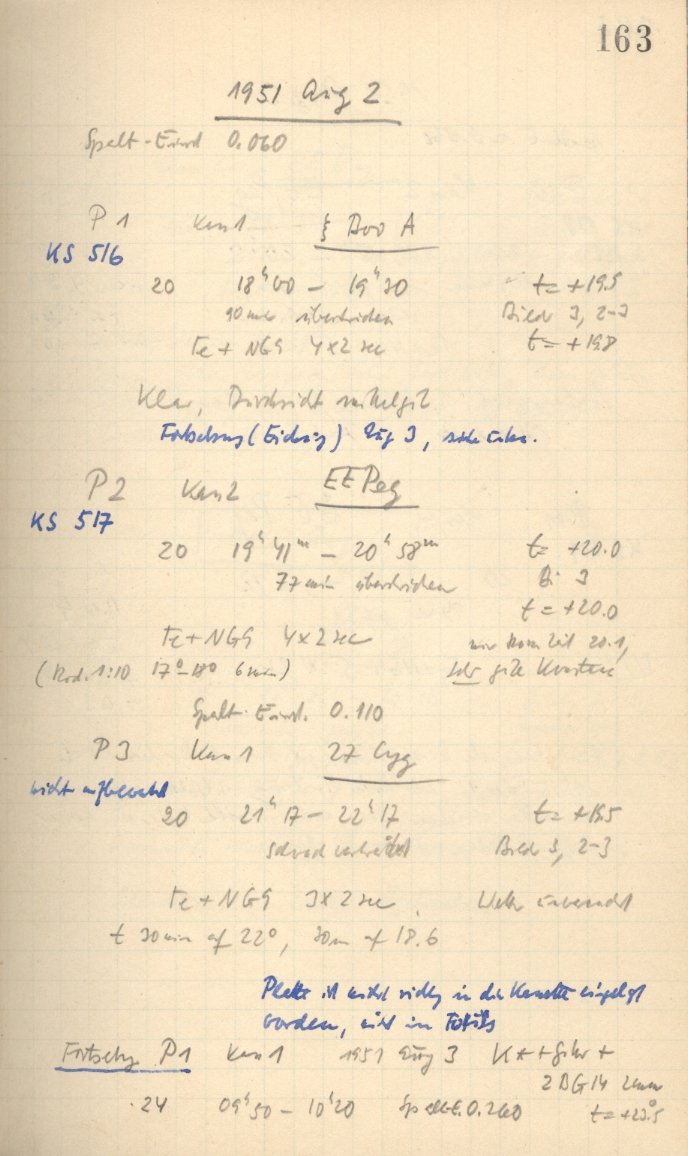 163
1951 Aug 2
Spalt-Einst 0.060
P 1 Kam 1 ξ Boo A
KS 516
20 18ʰ00 – 19ʰ30 t = +19.5
90 min überstrichen Bild 3, 2-3
Fe + NG9 4x2 sec t = +19.8
Klar, Durchsicht mittelgut
Fortsetzung (Eichung) Aug 3, siehe unten.
P2 Kam 2 EE Peg
KS 517
20 19ʰ41ᵐ – 20ʰ58ᵐ t = +20.0
77 min überstrichen Bi 3
t = +20.0
Fe + NG9 4x2 sec 20.1,
(Rod. 1:10 17°-18° 6 min) sehr gute
Spalt-Einst. 0.110
P3 Kam 1 27 Cyg
nicht aufbewahrt
20 21ʰ17 – 22ʰ17 t =
Bild 3, 2-3
Fe + NG9 3x2 sec
t 30 min auf 22°, 30m auf 18.6
Platte ist nicht richtig in die Kassette eingelegt
worden, nicht im
Fortsetzg P1 Kam 1 1951 Aug 3
2 BG14 2mm
24 09ʰ50 – 10ʰ20 Spalt-E. 0.260 t = +23.5